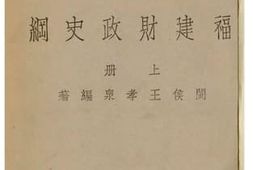 福建財政史綱
上册
閩侯王孝泉編著